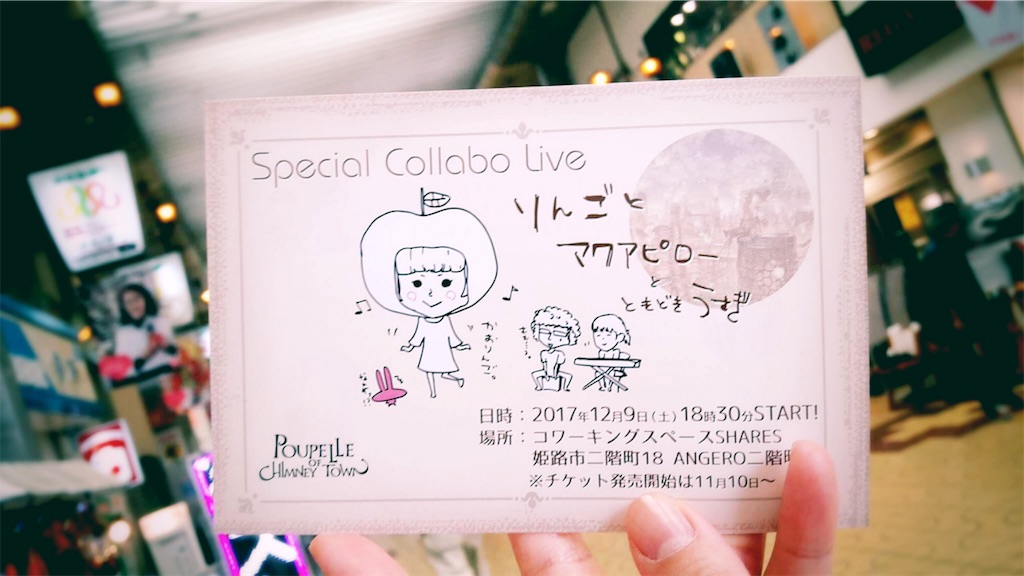 Special Collabo Live
りんごと
アクアピロー
と
ときどきうさぎ
かおりんご。
日時：2017年12月9日（土）18時30分START!
場所：コワーキングスペースSHARES
姫路市二階町18 ANGERO二階
※チケット発売開始は11月10日～
POUPELLE
OF
CHIMNEY TOWN